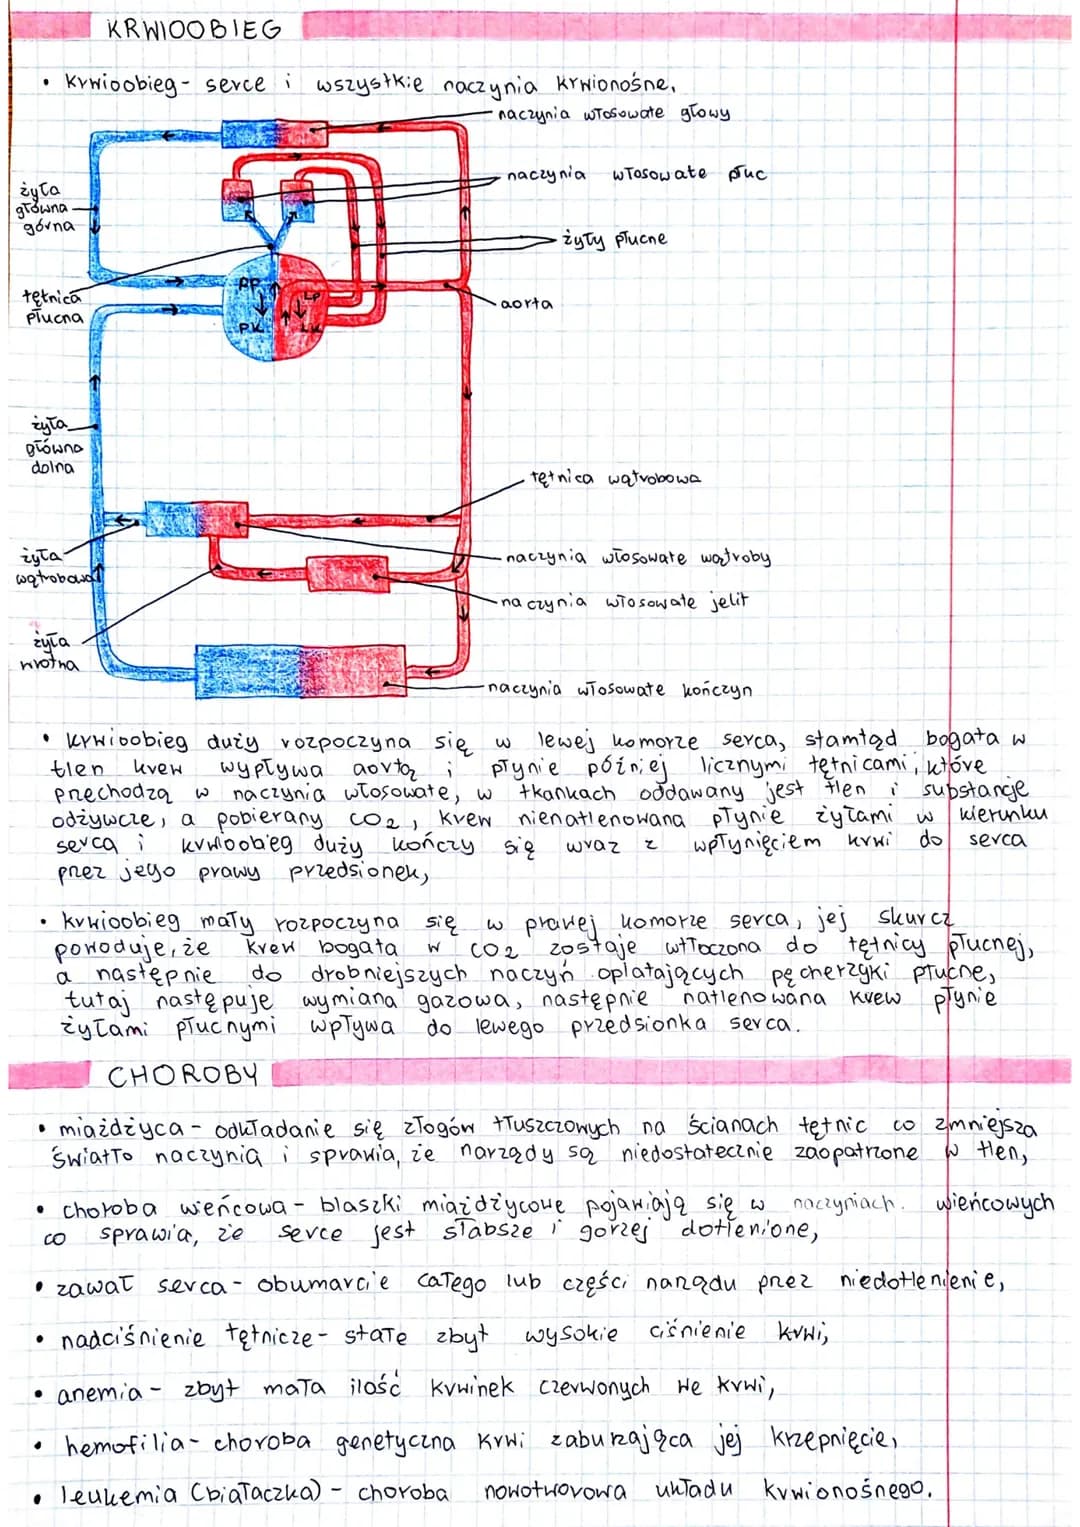 KRWIOOBIEG
• krwioobieg - serce i wszystkie naczynia krwionośne,
naczynia włosowate głowy
naczynia włosowate płuc
żyła
główna
górna
żyły płucne
tętnica
płucna
PP
LP
PK
LK
aorta
żyła
główna
dolna
tętnica wątrobowa
żyła
wątrobowa
naczynia włosowate wątroby
naczynia włosowate jelit
żyła
wrotna
naczynia włosowate kończyn
• krwioobieg duży rozpoczyna się w lewej komorze serca, stamtąd bogata w
tlen krew wypływa aortą i płynie później licznymi tętnicami, które
prechodzą w naczynia włosowate, w tkankach oddawany jest tlen i substancje
odżywcze, a pobierany CO2, krew nienatlenowana płynie żyłami w kierunku
serca i krwioobieg duży kończy się wraz z wpłynięciem krwi do serca
prez jego prawy przedsionek,
• krwioobieg mały rozpoczyna się w prawej komorze serca, jej skurcz
powoduje, że krew bogata w CO2 zostaje wtłoczona do tętnicy płucnej,
a następnie do drobniejszych naczyń oplatających pęcherzyki płucne,
tutaj następuje wymiana gazowa, następnie natlenowana krew płynie
żyłami płucnymi wpływa do lewego przedsionka serca.
CHOROBY
• miażdżyca - odkładanie się złogów tłuszczowych na ścianach tętnic co zmniejsza
światło naczynia i sprawia, że narządy są niedostatecznie zaopatrzone w tlen,
• choroba wieńcowa - blaszki miażdżycowe pojawiają się w naczyniach wieńcowych
co sprawia, że serce jest słabsze i gorzej dotlenione,
• zawał serca - obumarcie całego lub części narządu prez niedotlenienie,
• nadciśnienie tętnicze - stałe zbyt wysokie ciśnienie krwi,
• anemia - zbyt mała ilość krwinek czerwonych we krwi,
• hemofilia - choroba genetyczna krwi zaburzająca jej krzepnięcie,
• leukemia (białaczka) - choroba nowotworowa układu krwionośnego.